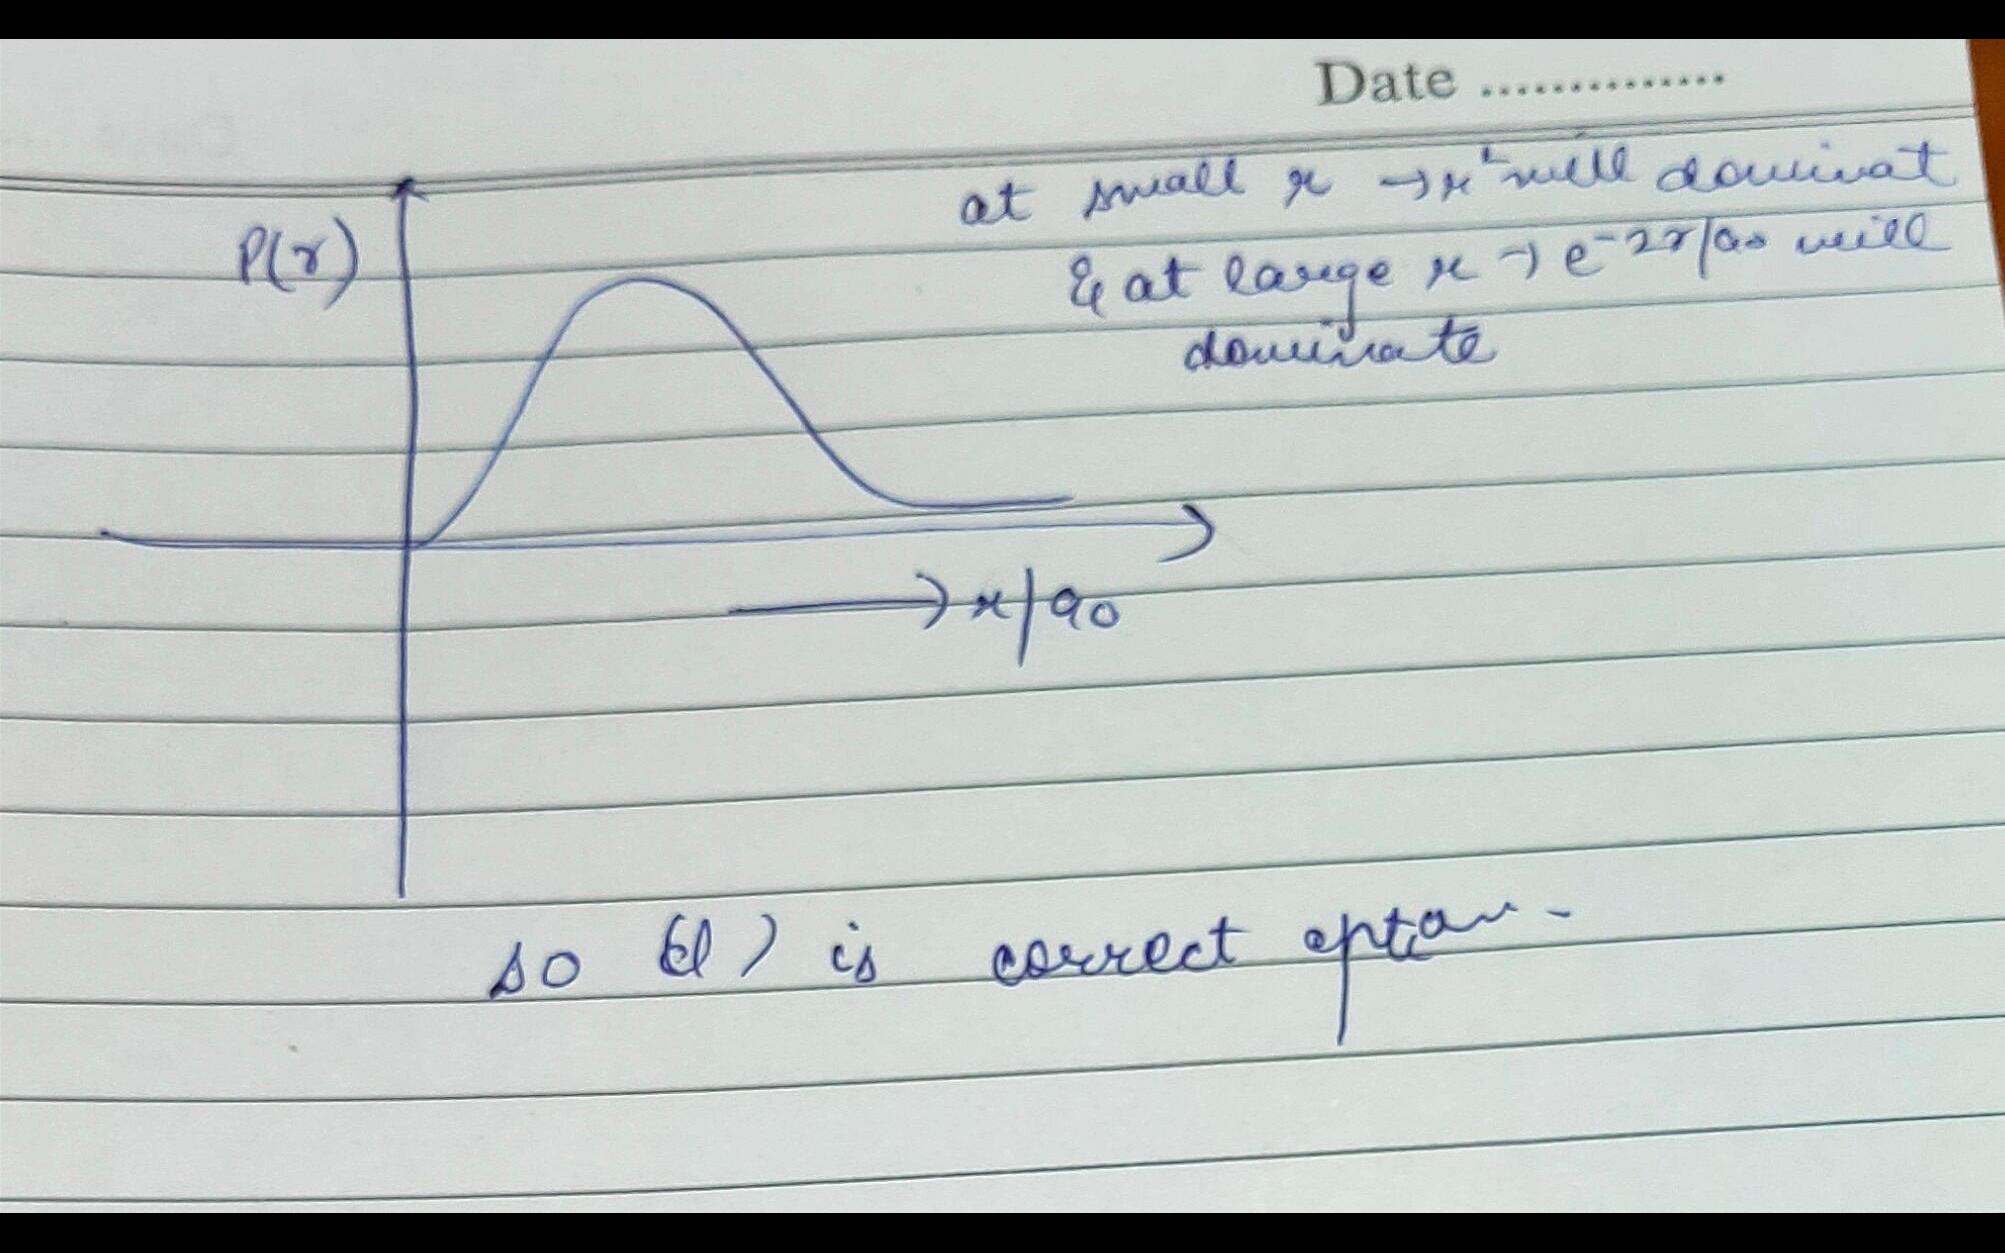 Date ..............
at small r → r² will dominat
P(r)
& at large r → e^-2r/a0 will
dominate
→ r/a0
so (d) is correct option.